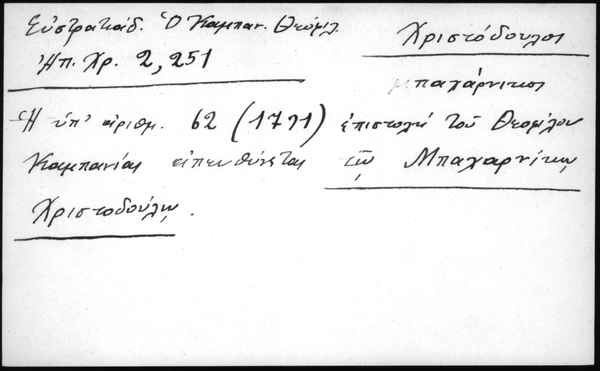 Εὐστρατιάδ. Ὁ Καμπαν. Θεόφιλ.
Ἠπ. Χρ. 2, 251
Χριστόδουλος
μπαχάρνικος
Ἡ ὑπ' ἀριθμ. 62 (1791) ἐπιστολή τοῦ Θεοφίλου
Καμπανίας ἀπευθύνεται τῷ Μπαχαρνίκῳ
Χριστοδούλῳ.